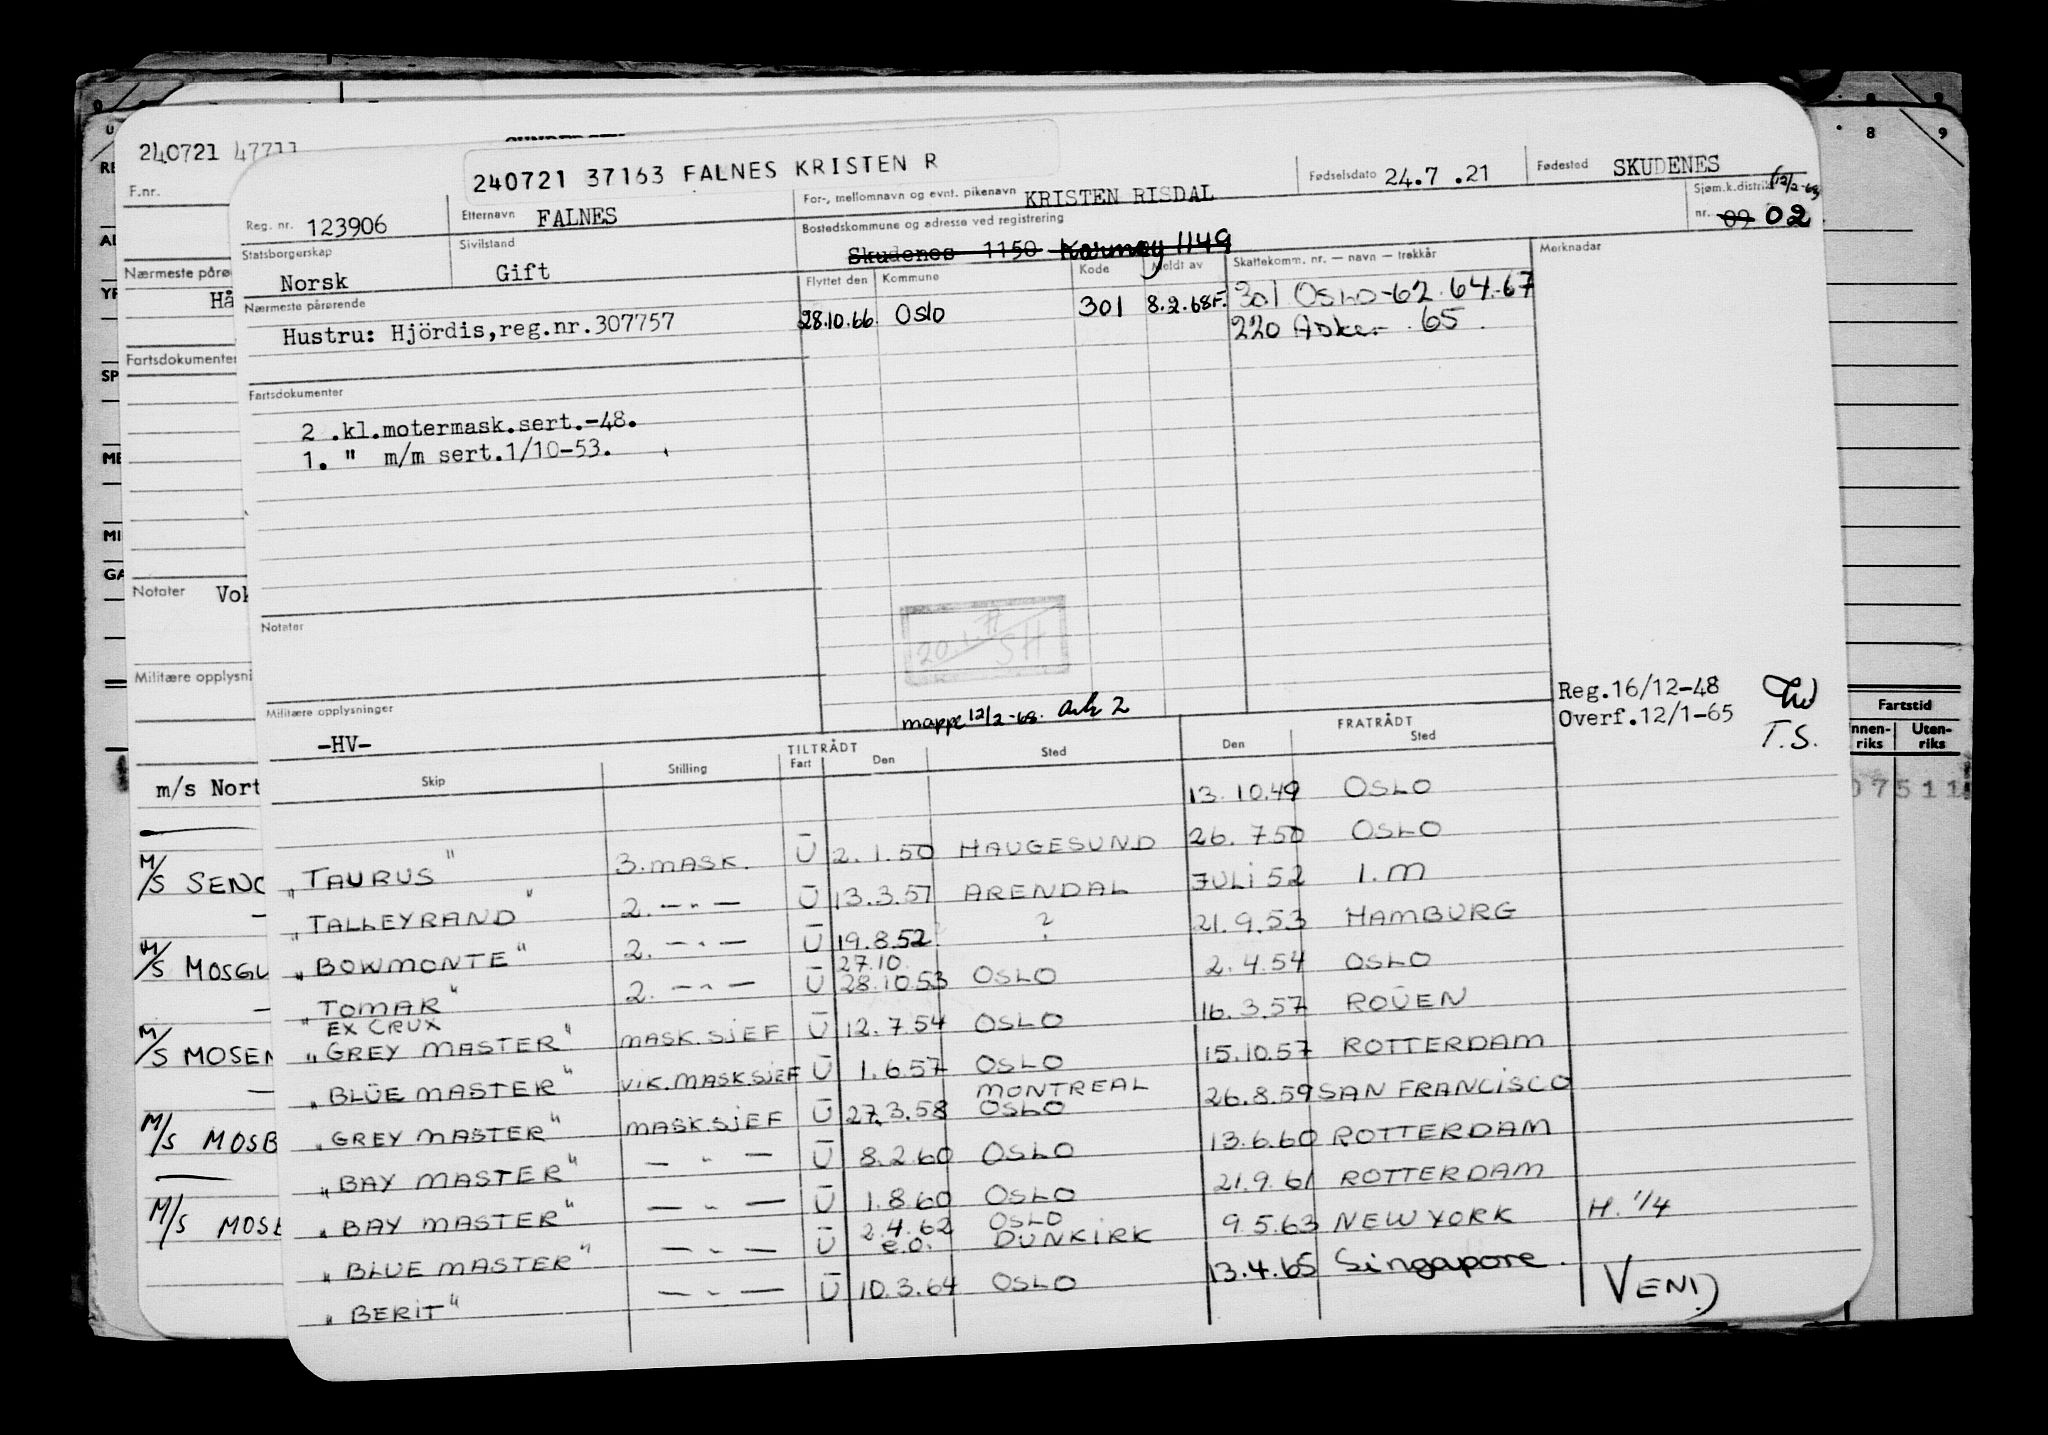 240721 47711
F.nr.
240721 37163 FALNES KRISTEN R
Reg. nr. 123906
Etternavn FALNES
For-, mellomnavn og evnt. pikenavn KRISTEN RISDAL
Fødselsdato 24.7 .21
Fødested SKUDENES
Statsborgerskap Norsk
Sivilstand Gift
Bostedskommune og adresse ved registrering
Skudenes 1150 Karmøy 1149
Sjøm.k.distrikt 12/2-68
nr. 09 02
Nærmeste pårørende
Hustru: Hjördis,reg.nr.307757
Flyttet den Kommune Kode Meldt av Skattekomm. nr. — navn — trekkår Merknadar
28.10.66. Oslo 301 8.2.68F. 301 OSLO-62.64.-67
220 Asker .65.
Fartsdokumenter
2 .kl.motermask.sert.-48.
1. " m/m sert.1/10-53.
Notater
Militære opplysninger
-HV-
mappe 12/2-68. Ark 2
Reg.16/12-48
Overf.12/1-65 T.S.
TILTRÅDT FRATRÅDT
Skip Stilling Fart Den Sted Den Sted
13.10.49 OSLO
"TAURUS" 3.MASK. U 2.1.50 HAUGESUND 26.7.50 OSLO
"TALLEYRAND" 2. —"— U 13.3.51 ARENDAL JULI 52 I.M
"BOWMONTE" 2. —"— U 19.8.52 ? 21.9.53 HAMBURG
27.10.
"TOMAR" 2. —"— U 28.10.53 OSLO 2.4.54 OSLO
EX CRUX
"GREY MASTER" MASK.SJEF U 12.7.54 OSLO 16.3.57 ROUEN
"BLUE MASTER" VIK.MASKSJEF U 1.6.57 OSLO 15.10.57 ROTTERDAM
MONTREAL
"GREY MASTER" MASK.SJEF U 27.3.58 OSLO 26.8.59 SAN FRANCISCO
"BAY MASTER" —"— U 8.2.60 OSLO 13.6.60 ROTTERDAM
"BAY MASTER" —"— U 1.8.60 OSLO 21.9.61 ROTTERDAM
2.4.62 OSLO
"BLUE MASTER" —"— U e.o. DUNKIRK 9.5.63 NEW YORK H. 1/4
"BERIT" —"— U 10.3.64 OSLO 13.4.65 Singapore.
VEND
Nærmeste pårø
Hå
Fartsdokumenter
Notater
Militære opplysni
m/s Nort
M/S MOSB
8 9
Fartstid
Innen-riks Uten-riks
07511